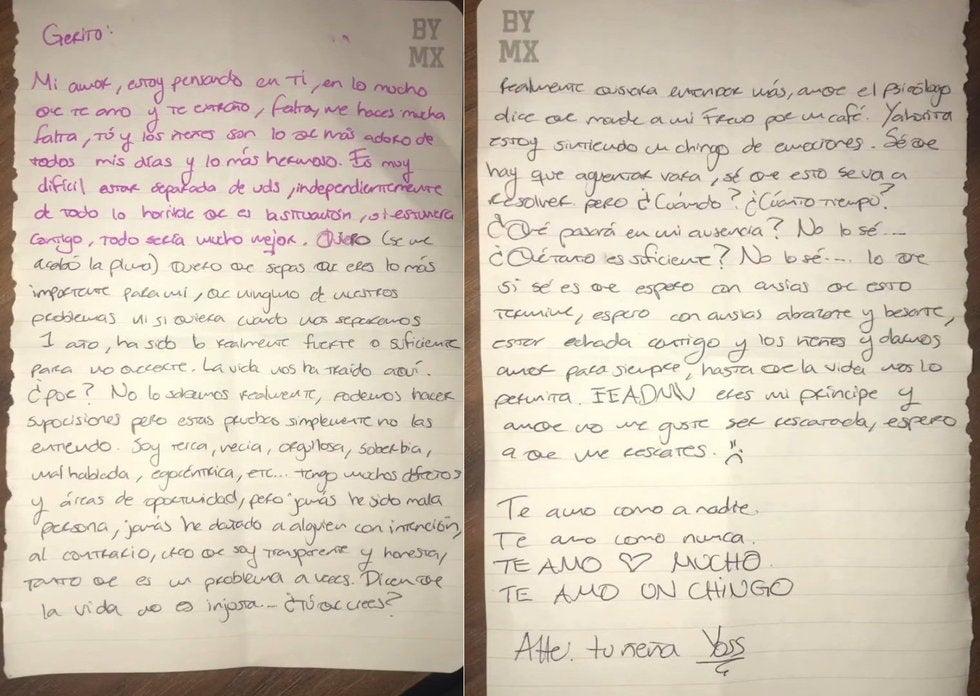 Gerito:
BY
MX
Mi amor, estoy pensando en Ti, en lo mucho
que te amo y te extraño, falta, me haces mucha
falta, tú y los nenes son lo que más adoro de
todos mis días y lo más hermoso. Es muy
difícil estar separada de uds, independientemente
de todo lo horrible que es la situación, si estuviera
contigo, todo sería mucho mejor. Quiero (se me
acabó la pluma) Quiero que sepas que eres lo más
importante para mí, que ninguno de nuestros
problemas ni si quiera cuando nos separamos
1 año, ha sido lo realmente fuerte o suficiente
para no quererte. La vida nos ha traído aquí.
¿por? No lo sabemos realmente, podemos hacer
suposiciones pero estas pruebas simplemente no las
entiendo. Soy terca, necia, orgullosa, soberbia,
mal hablada, egocéntrica, etc... tengo muchos defectos
y áreas de oportunidad, pero jamás he sido mala
persona, jamás he dañado a alguien con intención,
al contrario, creo que soy transparente y honesta,
tanto que es un problema a veces. Dicen que
la vida no es injusta... ¿Tú qué crees?
BY
MX
realmente quisiera entender más, aunque el Psicólogo
dice que mande a mi Freud por un café. Yahorita
estoy sintiendo un chingo de emociones. Sé que
hay que aguentar vara, sé que esto se va a
resolver pero ¿Cuándo? ¿Cuánto tiempo?
¿Qué pasará en mi ausencia? No lo sé...
¿Qué tanto es suficiente? No lo sé.... lo que
si sé es que espero con ansias que esto
termine, espero con ansias abrazarte y besarte,
estar echada contigo y los nenes y darnos
amor para siempre, hasta que la vida nos lo
permita. eres mi príncipe y
aunque no me guste ser rescatada, espero
a que me rescates. :(
Te amo como a nadie.
Te amo como nunca.
TE AMO ♡ MUCHO.
TE AMO UN CHINGO
Atte. tu nena Yoss